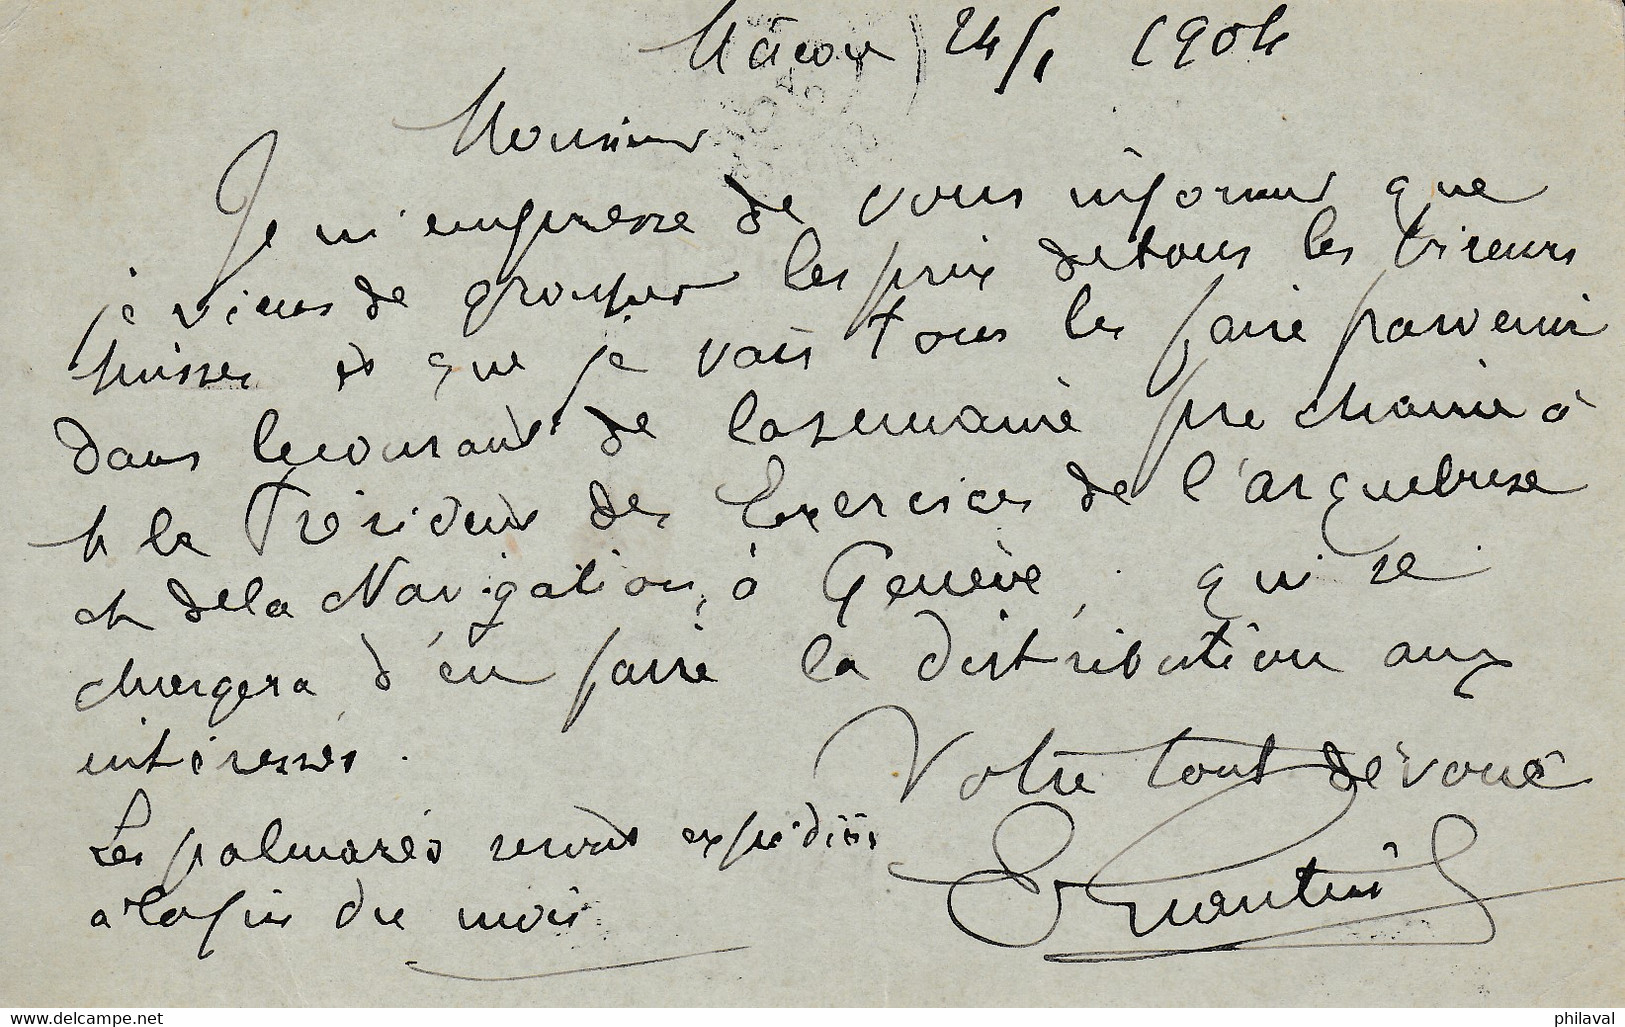 Mâcon 24/1 1904
Monsieur
Je m'empresse de vous informer que
je viens de grouper les prix de tous les tireurs
suisses et que je vais tous les faire parvenir
dans le courant de la semaine prochaine à
M le Président des Exercices de l'arquebuse
et de la Navigation, à Genève, qui se
chargera d'en faire la distribution aux
intéressés.
Votre tout dévoué
Les palmarès seront expédiés
à la fin du mois
www.delcampe.net
philaval